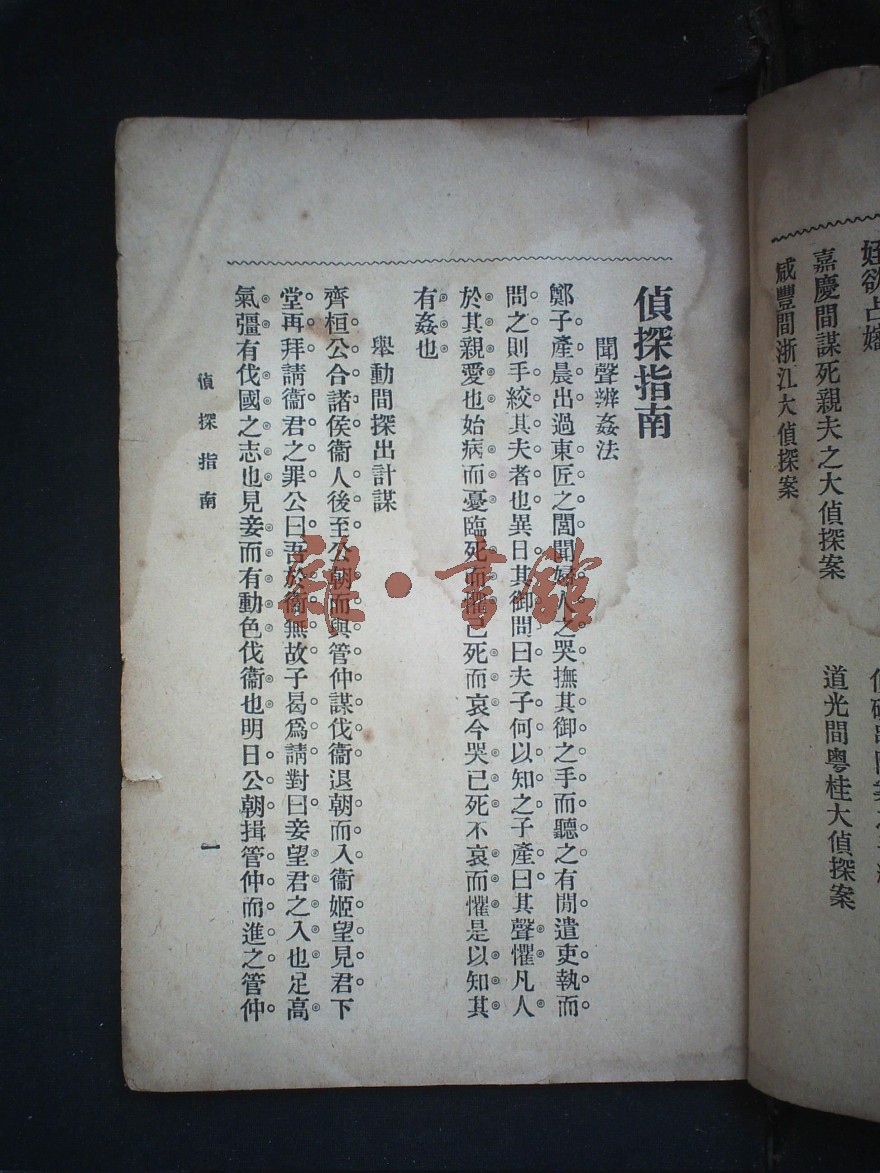 偵探指南
聞聲辨姦法
鄭子產晨出過東匠之閭聞婦人之哭撫其御之手而聽之有閒遣吏執而
問之則手絞其夫者也異日其御問曰夫子何以知之子產曰其聲懼凡人
於其親愛也始病而憂臨死而懼已死而哀今哭已死不哀而懼是以知其
有姦也
舉動間探出計謀
齊桓公合諸侯衞人後至公朝而與管仲謀伐衞退朝而入衞姬望見君下
堂再拜請衞君之罪公曰吾於衞無故子曷爲請對曰妾望君之入也足高
氣彊有伐國之志也見妾而有動色伐衞也明日公朝揖管仲而進之管仲
偵探指南
一
嘉慶間謀死親夫之大偵探案
道光間粵桂大偵探案
咸豐間浙江大偵探案
雜·書館